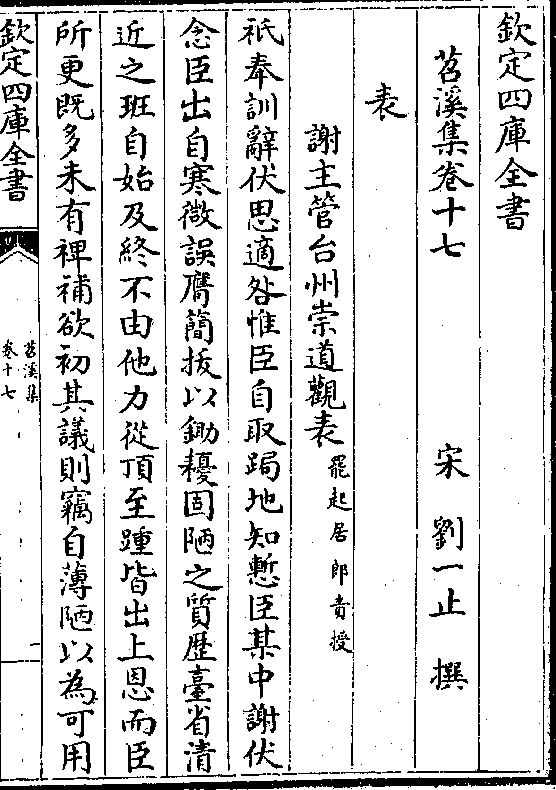 欽定四庫全書
苕溪集卷十七
宋 劉一止 撰
表
謝主管台州崇道觀表罷起居郎責授
祇奉訓辭伏思適咎惟臣自取跼地知慙臣某中謝伏
念臣出自寒微誤膺簡拔以鋤耰固陋之質歷臺省清
近之班自始及終不由他力從頂至踵皆出上恩而臣
所更既多未有裨補欲初其議則竊自薄陋以為可用
欽定四庫全書
苕溪集
卷十七
一